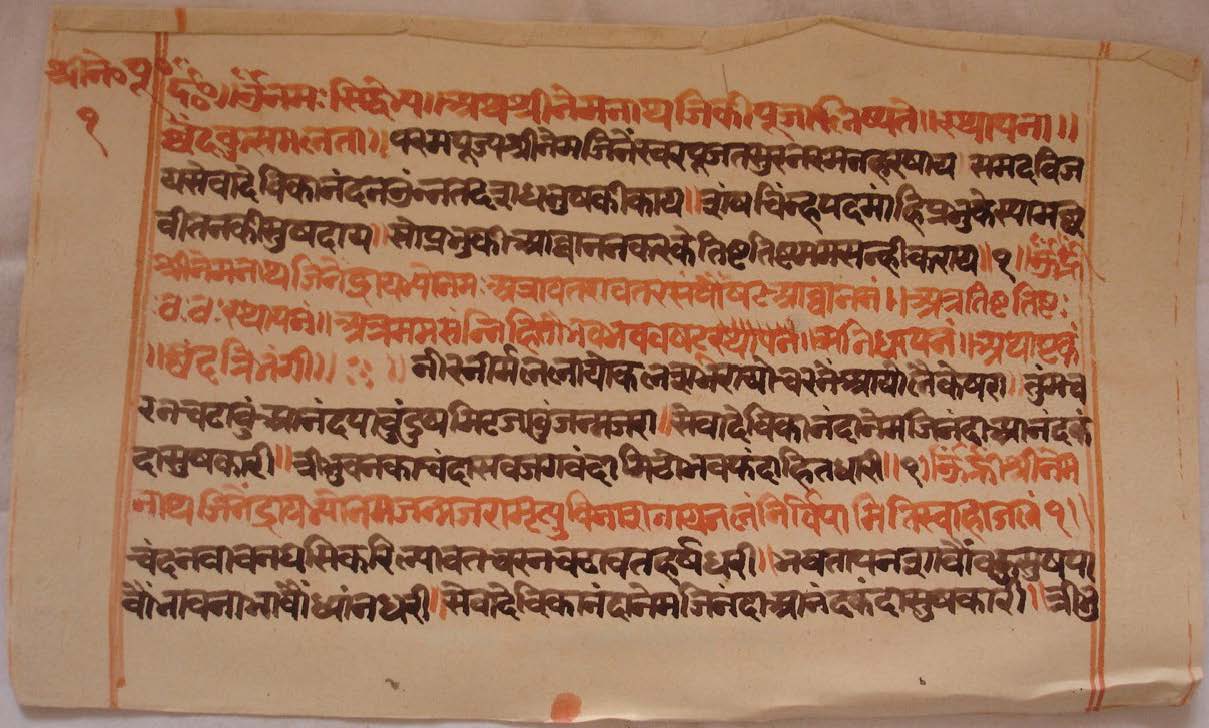 श्रीने॰पू॰
१
॥ र्द॰॥ ॐ नमः सिद्धेभ्य॥ अथ श्रीनेमनाथजिकी पूजा लिष्यते॥ स्थापना॥
छंद कुसमलता॥ परमपूज्य श्रीनेमजिनेस्वर पूजत सुरनर मन हरषाय समदविज
यसेवादेविकानंदन उंन्नत दश धनुषकी काय॥ शंष चिंन्ह पदमांहि प्रभुके स्याम छ
वीतनकी सुषदाय॥ सो प्रभुकी आह्वानन करके तिष्ट तिष्ट मम सन्हीकराय॥१॥ ॐ ह्रीं
श्रीनेमनाथजिनेंद्राय भ्यो नमः अत्रावतरावतर संवौषट आह्वाननं॥ अत्र तिष्ट तिष्ट:
ठ.ठः स्थापनं॥ अत्र मम संन्निहितो भव भव वषट् स्थापनं॥ सनिधापनं॥ अथाष्टकं
॥छंद त्रिभंगी॥ नीर नीर्मल लायो कलस भरायो चरन आयो लै केषरा तुंम च
रन चढावुं आनंद पावुं दुष मिट जावुं जन्मजरा॥ सेवादेविकानंदा नेमजिनंदा आनंदकं
दा सुषकारी॥ त्रीभुवनकाचंदा सब जगवंदा मिटो भवफंदा हितधारी॥१॥ ॐ ह्रीं श्रीनेम
नाथजिनेंद्राय भ्यो नम जन्मजरामृत्युविनाशनाय जलं निर्विपामितिस्वाहा जलं १॥
चंदन बावन घसि करि ल्यावत चरन चढावत हर्ष धरी॥ भवताप नशावौं बहु सुष पा
वौं भावना भावौं ध्यांन धरी॥ सेवादेविकानंदा नेमजिनंदा आनंदकंदा सुषकारी॥ त्रीभु